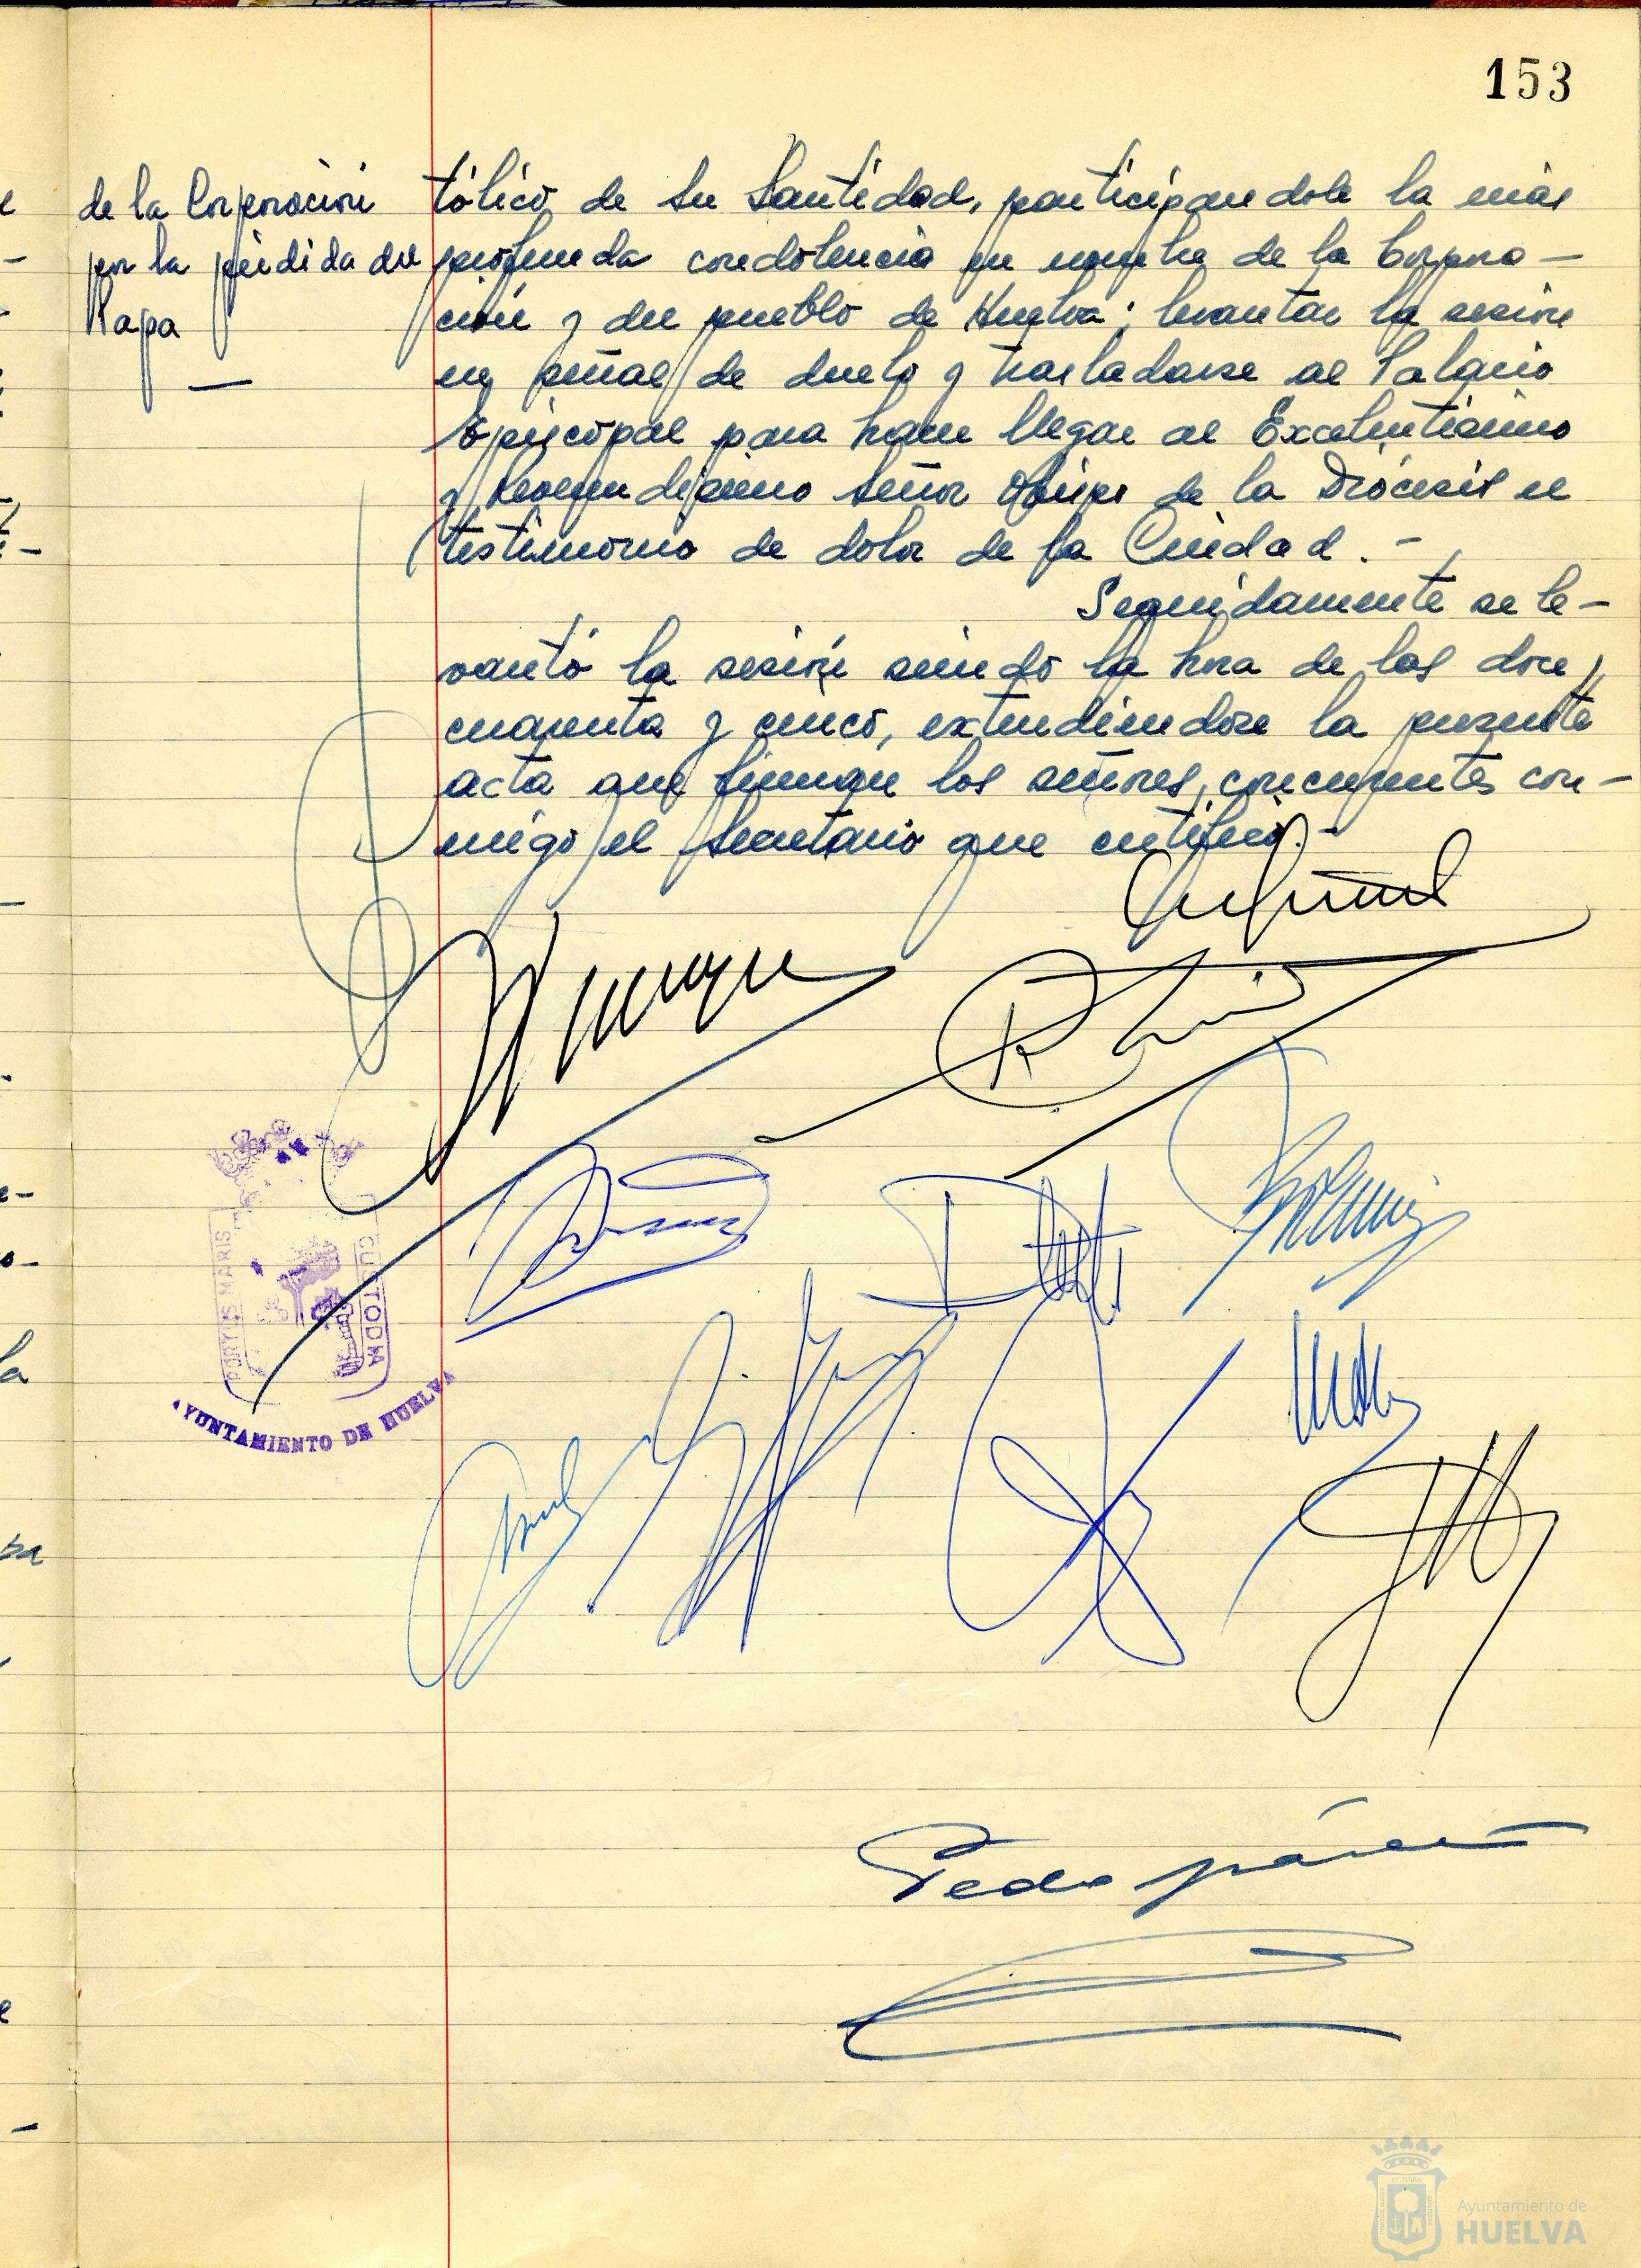 153
de la Corporación
por la pérdida del
Papa
tólico de Su Santidad, participandole la más
profunda condolencia en nombre de la Corpora-
ción y del pueblo de Huelva; levantar la sesión
en señal de duelo y trasladarse al Palacio
Episcopal para hacer llegar al Excelentísimo
y Reverendísimo Señor Obispo de la Diócesis el
testimonio de dolor de la Ciudad.-
Seguidamente se le-
vantó la sesión siendo la hora de las doce y
cuarenta y cinco, extendiendose la presente
acta que firman los señores concurrentes con-
migo el Secretario que certifico.-
PORTUS MARIS
CUSTODIA
AYUNTAMIENTO DE HUELVA
Pedro
Ayuntamiento de
HUELVA